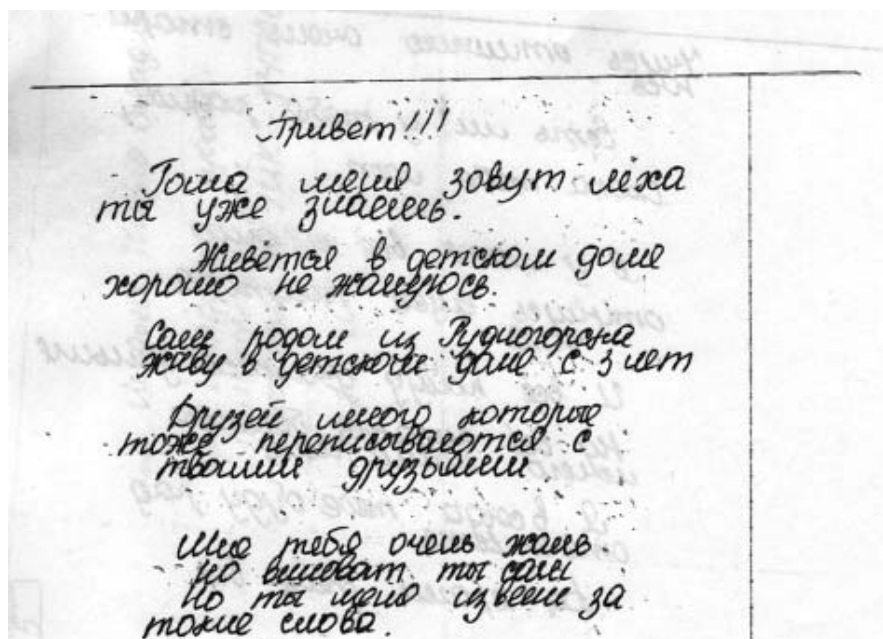 Привет!!!
Гоша меня зовут лёха
ты уже знаешь.
Живётся в детском доме
хорошо не жалуюсь.
Сам родом из Рудногорска
живу в детском доме с 3 лет
Друзей много которые
тоже переписываются с
твоими друзьями
Мне тебя очень жаль.
но виноват ты сам
Но ты меня извени за
такие слова.